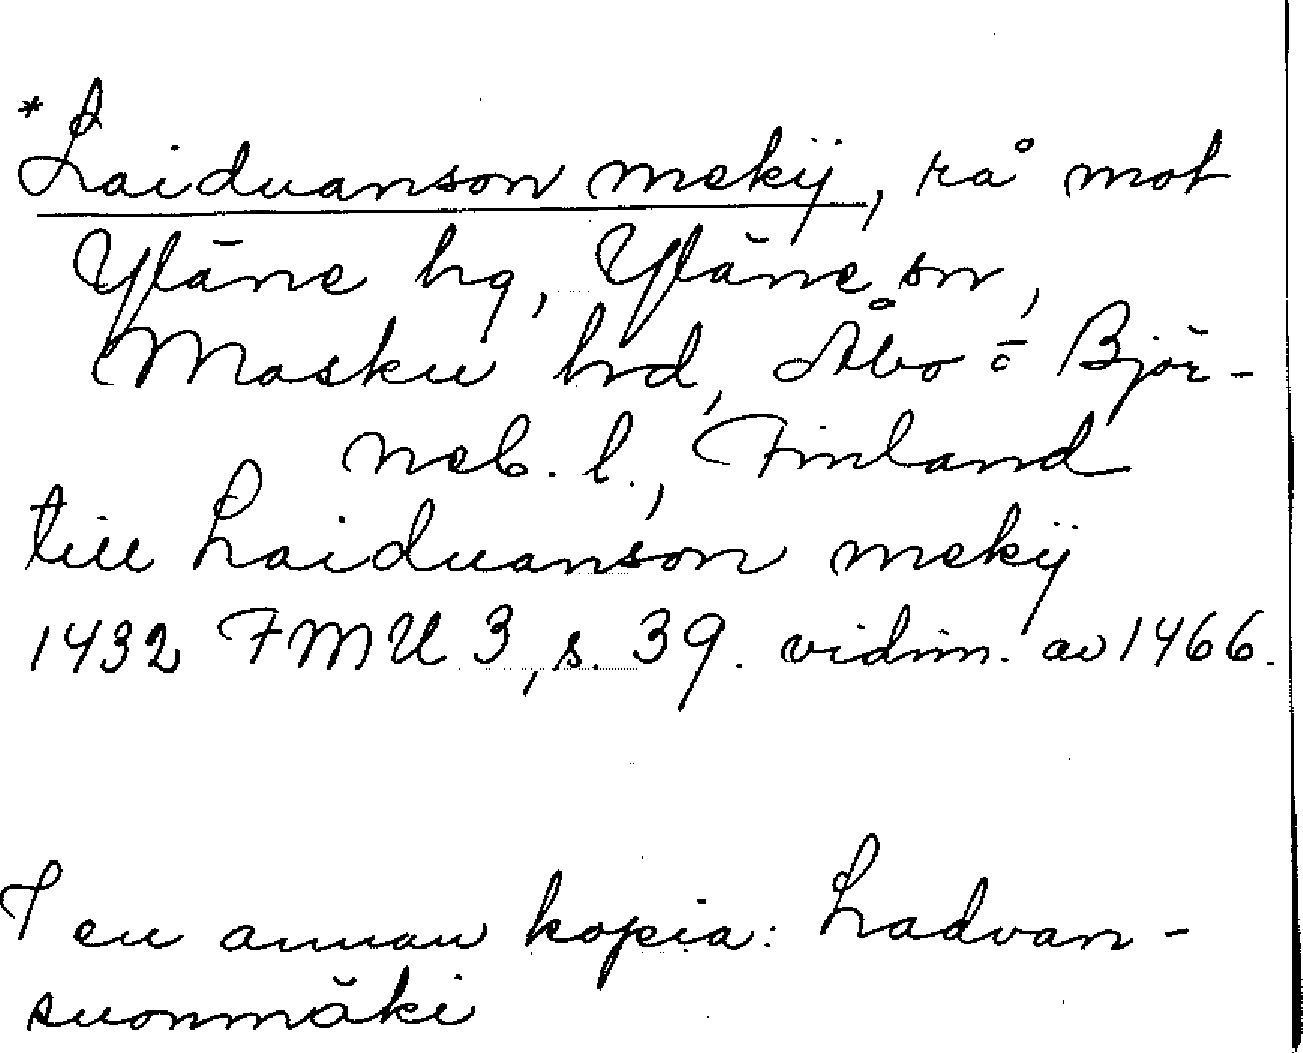 *Laiduanson mekij, rå mot
Yläne hg, Yläne sn,
Masku hd, Åbo o Björ-
neb. l., Finland
till Laiduanson mekij
1432 FMU 3, s. 39. vidim. av 1466.
I en annan kopia: Ladvan-
suonmäki